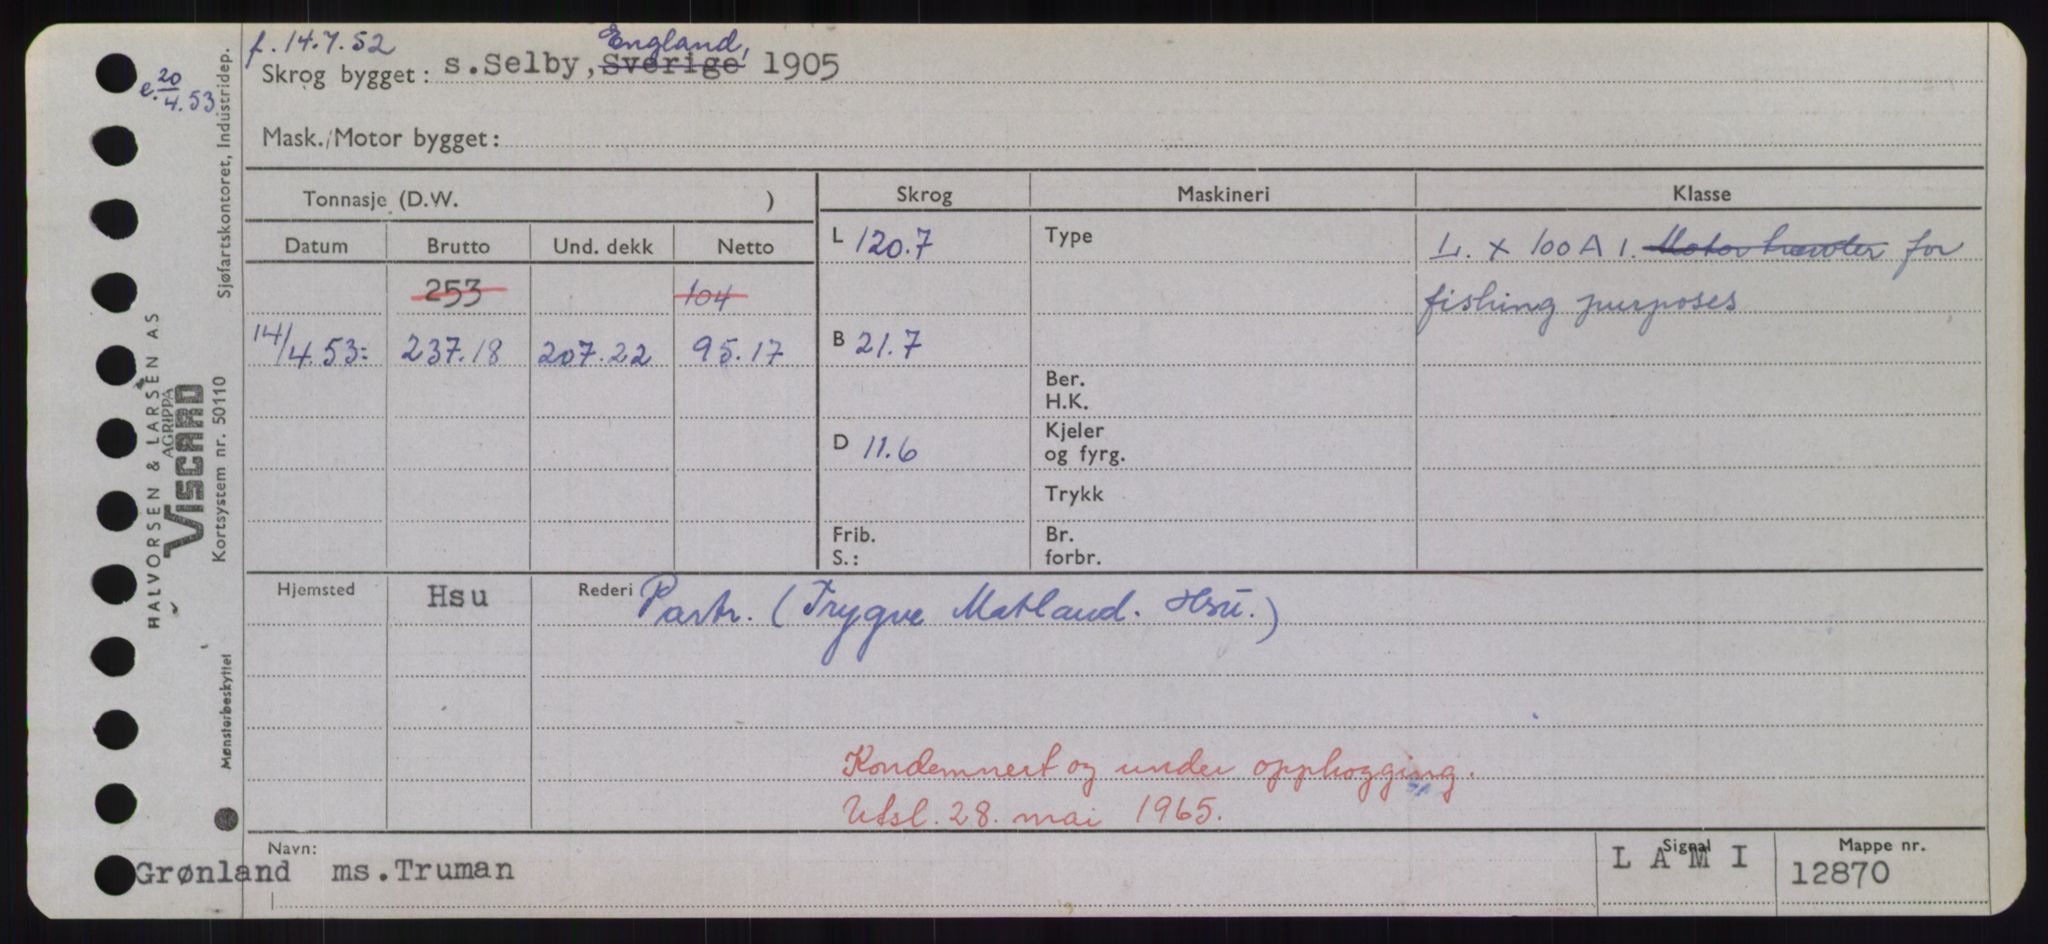 f. 14.7.52
England,
Skrog bygget: s.Selby, Sverige 1905
e. 20/4.53
Mask./Motor bygget:
Tonnasje (D.W. )
Skrog Maskineri Klasse
Datum Brutto Und. dekk Netto
L 120.7 Type L. + 100 A 1. Motor trawler for
253 104 fishing purposes
14/4.53: 237.18 207.22 95.17 B 21.7
Ber.
H.K.
D 11.6 Kjeler
og fyrg.
Trykk
Frib. Br.
S.: forbr.
Hjemsted Hsu Rederi Partr. (Trygve Matland. Hsu.)
Kondemnert og under opphogging.
Utsl. 28. mai 1965.
Navn: Signal Mappe nr.
Grønland ms.Truman L A M I 12870
Sjøfartskontoret, Industridep.
HALVORSEN & LARSEN AS
AGRIPPA
VISCARD
Kortsystem nr. 50110
Mønsterbeskyttet